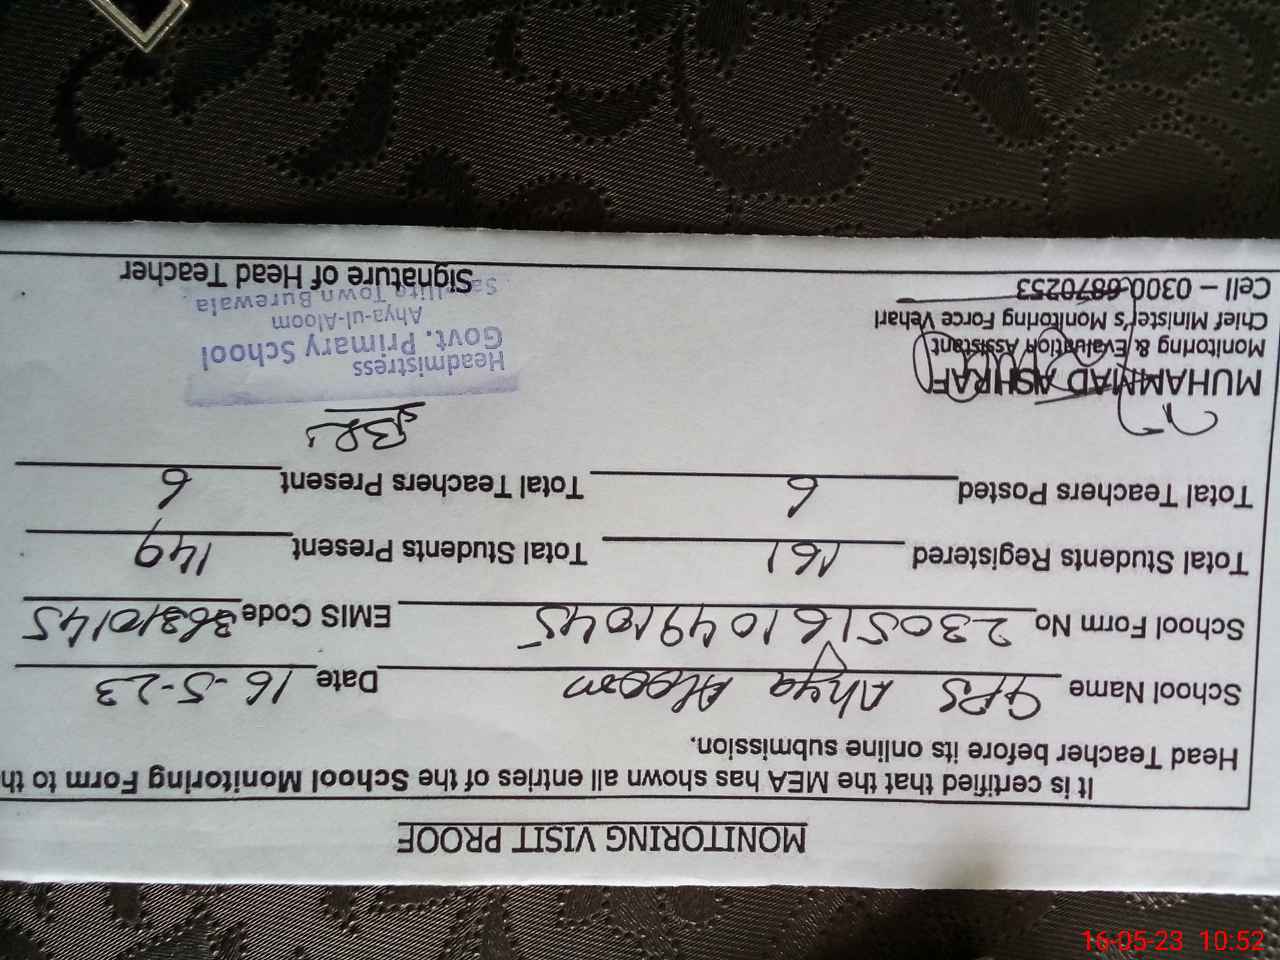 MONITORING VISIT PROOF
It is certified that the MEA has shown all entries of the School Monitoring Form to th
Head Teacher before its online submission.
School Name GPS Ahya Aloom Date 16-5-23
School Form No 2305161049 1045 EMIS Code 36310145
Total Students Registered 161 Total Students Present 149
Total Teachers Posted 6 Total Teachers Present 6
MUHAMMAD ASHRAF
Monitoring & Evaluation Assistant
Chief Minister's Monitoring Force Vehari
Cell – 0300-6870253
Headmistress
Govt. Primary School
Ahya-ul-Aloom
Satellite Town Burewala
Signature of Head Teacher
16-05-23 10:52